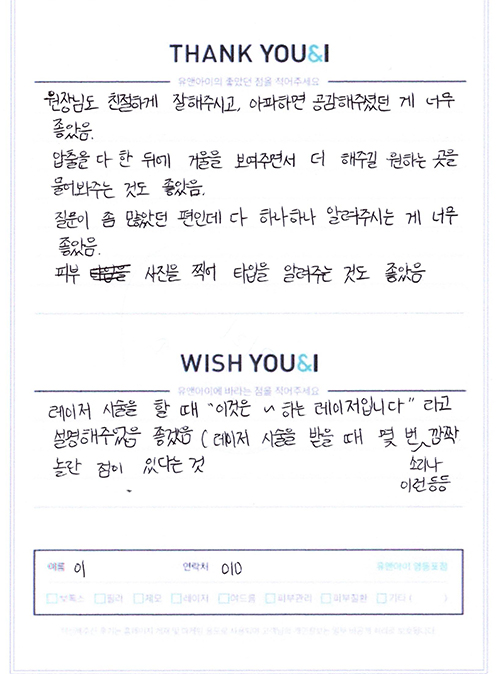 THANK YOU&I
유앤아이의 좋았던 점을 적어주세요
원장님도 친절하게 잘해주시고, 아파하면 공감해주셨던 게 너무
좋았음.
압출을 다 한 뒤에 거울을 보여주면서 더 해주길 원하는 곳을
물어봐주는 것도 좋았음.
질문이 좀 많았던 편인데 다 하나하나 알려주시는 게 너무
좋았음.
피부 타입을 사진을 찍어 타입을 알려주는 것도 좋았음
WISH YOU&I
유앤아이에 바라는 점을 적어주세요
레이저 시술을 할 때 "이것은 ~ 하는 레이저입니다" 라고
설명해주었음 좋겠음 (레이저 시술을 받을 때 몇 번 깜짝
놀란 점이 있다는 것
소리나
이런 등등
이름 이 연락처 010 유앤아이 영등포점
보톡스 필러 제모 레이저 여드름 피부관리 피부질환 기타 ( )